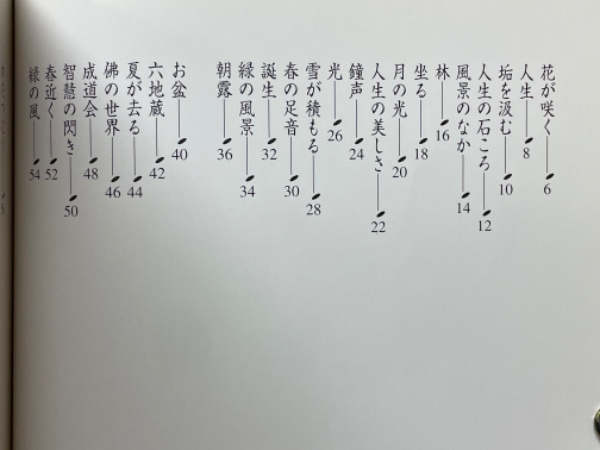 花が咲く 6
人生 8
垢を汲む 10
人生の石ころ 12
風景のなか 14
林 16
坐る 18
月の光 20
人生の美しさ 22
鐘声 24
光 26
雪が積もる 28
春の足音 30
誕生 32
緑の風景 34
朝露 36
お盆 40
六地蔵 42
夏が去る 44
佛の世界 46
成道会 48
智慧の閃き 50
春近く 52
緑の風 54